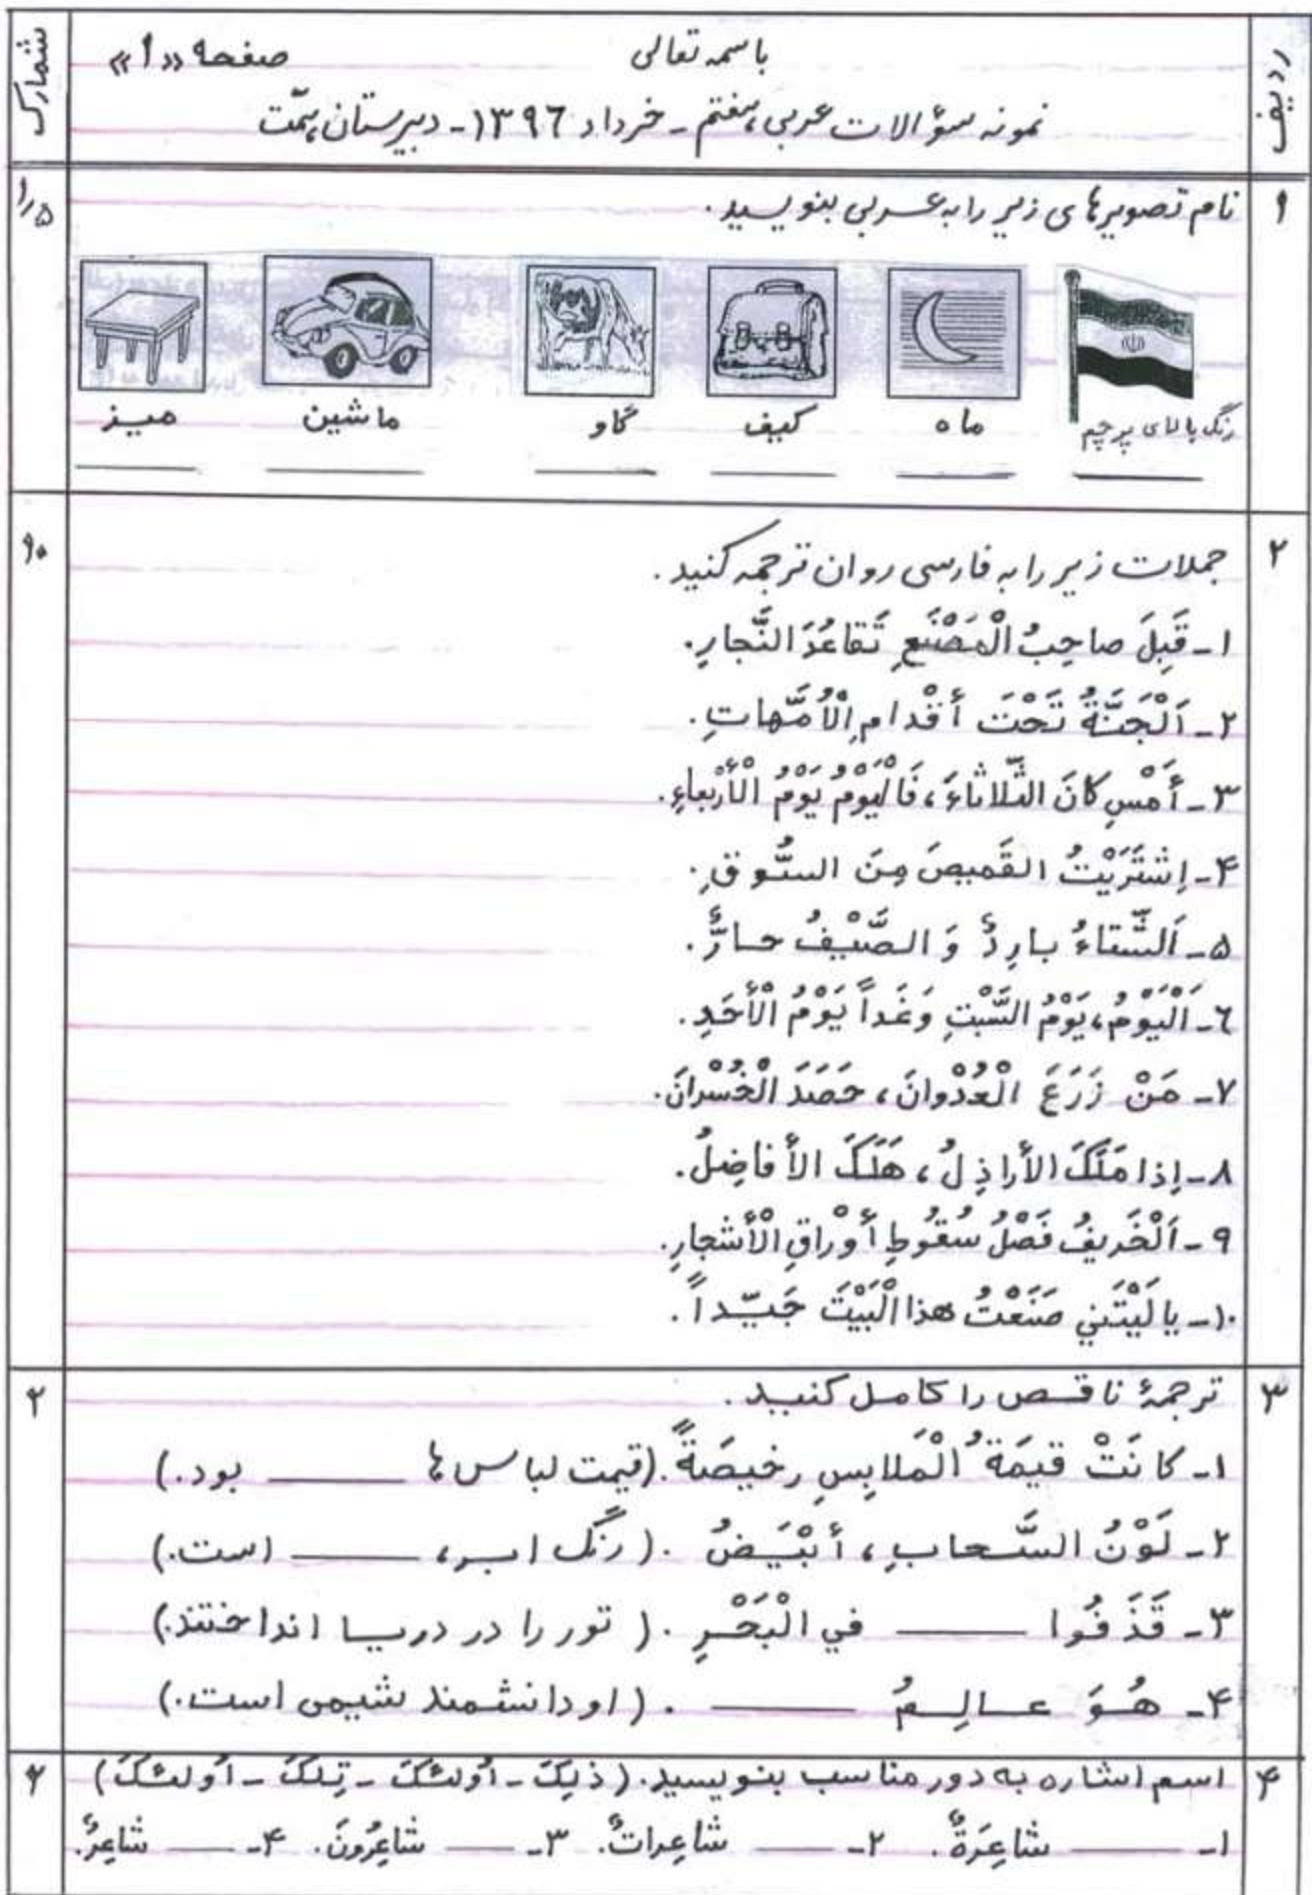 ردیف
باسمه تعالی
صفحه «۱»
شمارک
نمونه سؤالات عربی هفتم - خرداد ۱۳۹۶ - دبیرستان همّت
۱
نام تصویرهای زیر را به عربی بنویسید.
۱/۵
رنگ بالای پرچم
ماه
کیف
گاو
ماشین
میز
۲
جملات زیر را به فارسی روان ترجمه کنید.
۱۰
۱- قَبِلَ صاحِبُ الْمَصْنَعِ تَقاعُدَ النَّجارِ.
۲- اَلْجَنَّةُ تَحْتَ أَقْدامِ الْأُمَّهاتِ.
۳- أَمْسِ كانَ الثَّلاثاءَ، فَالْيَوْمُ يَوْمُ الْأَرْبعاءِ.
۴- اِشْتَرَيْتُ القَميصَ مِنَ السّوقِ.
۵- اَلشِّتاءُ بارِدٌ وَ الصَّيْفُ حارٌّ.
۶- اَلْيَوْمُ، يَوْمُ السَّبْتِ وَ غَداً يَوْمُ الْأَحَدِ.
۷- مَنْ زَرَعَ الْعُدْوانَ، حَصَدَ الْخُسْرانَ.
۸- إذا مَلَكَ الأَراذِلُ، هَلَكَ الأَفاضِلُ.
۹- اَلْخَريفُ فَصْلُ سُقُوطِ أَوْراقِ الْأَشْجارِ.
۱۰- يا لَيْتَني صَنَعْتُ هذا الْبَيْتَ جَيّداً.
۳
ترجمهٔ ناقص را کامل کنید.
۲
۱- كانَتْ قيمَةُ الْمَلابِسِ رخيصَةً. (قیمت لباس ها ــــــ بود.)
۲- لَوْنُ السَّحابِ، أَبْيَضُ. (رنگ ابر، ــــــ است.)
۳- قَذَفُوا ــــــ في الْبَحْرِ. (تور را در دریا انداختند.)
۴- هُوَ عالِمُ ــــــ. (او دانشمند شیمی است.)
۴
اسم اشاره به دور مناسب بنویسید. (ذلِكَ - اُولئكَ - تِلكَ - اُولئكَ)
۲
۱- ــــــ شاعِرَةٌ. ۲- ــــــ شاعِراتٌ. ۳- ــــــ شاعِرُونَ. ۴- ــــــ شاعِرٌ.